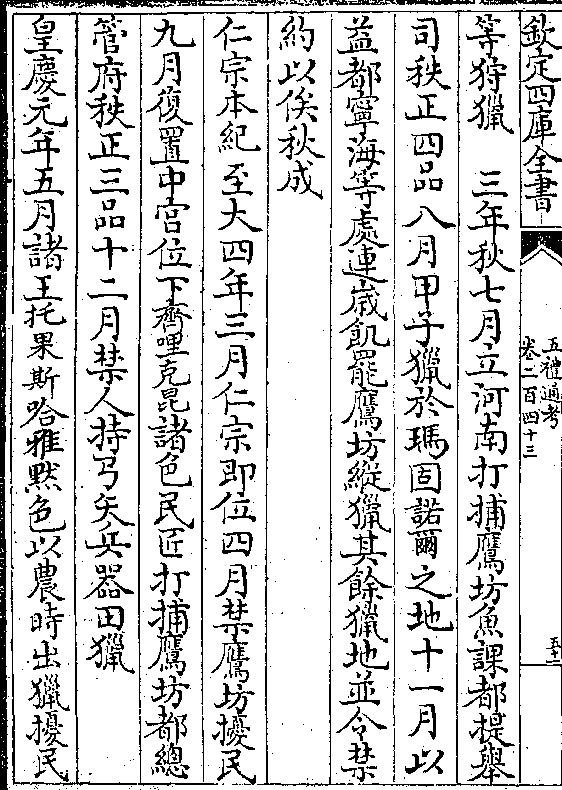 欽定四庫全書
五禮通考
卷二百四十三
五十二
等狩獵　三年秋七月立河南打捕鷹坊魚課都提舉
司秩正四品八月甲子獵於瑪固諾爾之地十一月以
益都寧海等處連嵗飢罷鷹坊縱獵其餘獵地並令禁
約以俟秋成
仁宗本紀至大四年三月仁宗即位四月禁鷹坊擾民
九月復置中宫位下齊哩克昆諸色民匠打捕鷹坊都總
管府秩正三品十二月禁人持弓矢兵器田獵
皇慶元年五月諸王托果斯哈雅黙色以農時出獵擾民